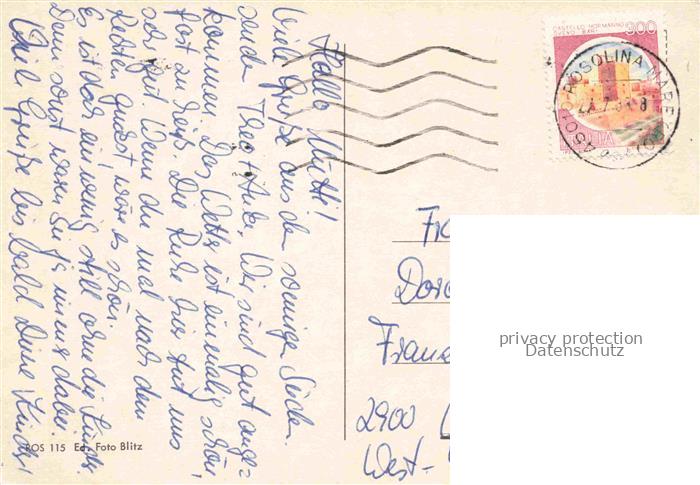 Hallo Mutti!
Viele Grüße aus dem sonnigen Süden
senden Theo + Anke. Wir sind gut ange-
kommen. Das Wetter ist einmalig schön,
fast zu heiß. Die Ruhe hier tut uns
sehr gut. Wenn du mal nach dem
Rechten guckst wäre es schön.
Es ist doch ein wenig still ohne die Kinder.
Denn sonst waren sie ja immer dabei.
Viele Grüße bis bald Deine Kinder!
CASTELLO NORMANNO
SVEVO BARI
900
ROSOLINA MARE
Dor
2900
West-
privacy protection
Datenschutz
ROS 115 Ed. Foto Blitz